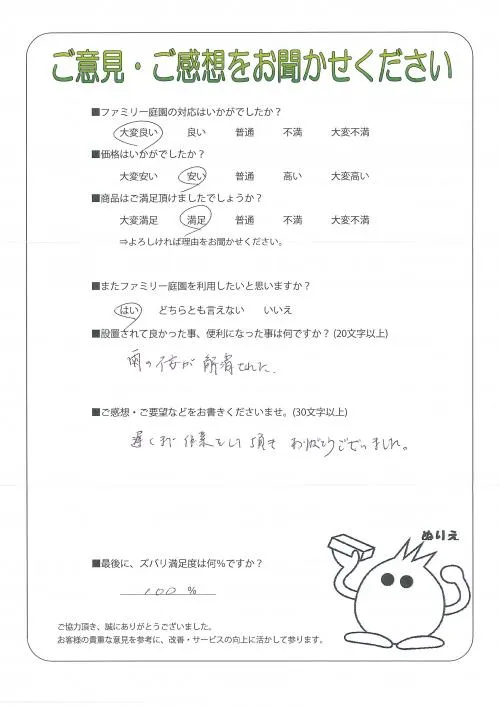 ご意見・ご感想をお聞かせください
■ファミリー庭園の対応はいかがでしたか？
大変良い 良い 普通 不満 大変不満
■価格はいかがでしたか？
大変安い 安い 普通 高い 大変高い
■商品はご満足頂けましたでしょうか？
大変満足 満足 普通 不満 大変不満
⇒よろしければ理由をお聞かせください。
■またファミリー庭園を利用したいと思いますか？
はい どちらとも言えない いいえ
■設置されて良かった事、便利になった事は何ですか？(20文字以上)
雨の不安が解消された.
■ご感想・ご要望などをお書きくださいませ。(30文字以上)
遅くまで作業をして頂き ありがとうございました。
ぬりえ
■最後に、ズバリ満足度は何％ですか？
100 %
ご協力頂き、誠にありがとうございました。
お客様の貴重な意見を参考に、改善・サービスの向上に活かして参ります。